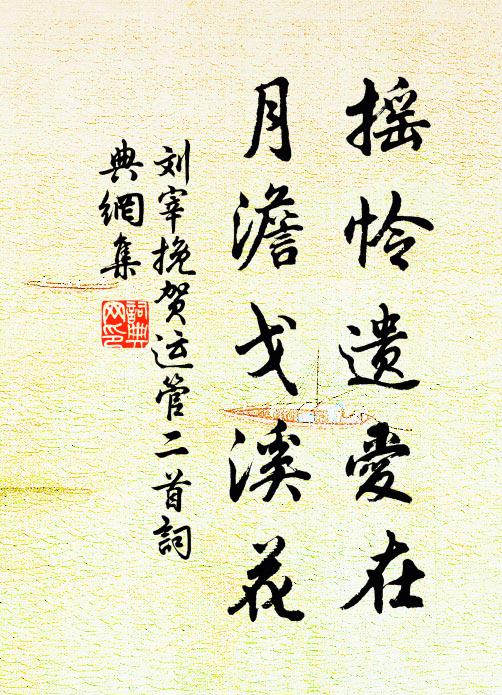 摇怜遗爱在
月澹戈溪花
刘宰挽贺运管二首词
典網集
詞典网印